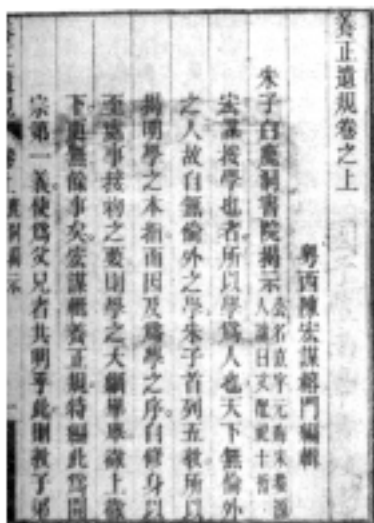 養正遺規卷之上
粵西陳宏謀榕門編輯
朱子白鹿洞書院揭示
宏謀按學也者所以學為人也天下無倫外
之人故自無倫外之學朱子首列五教所以
揭明學之本指而因及為學之序自修身以
至處事接物之要則學之大綱畢舉徹上徹
下更無餘事矣宏謀輯養正規特編此為開
宗第一義使為父兄者共明乎此則教子弟